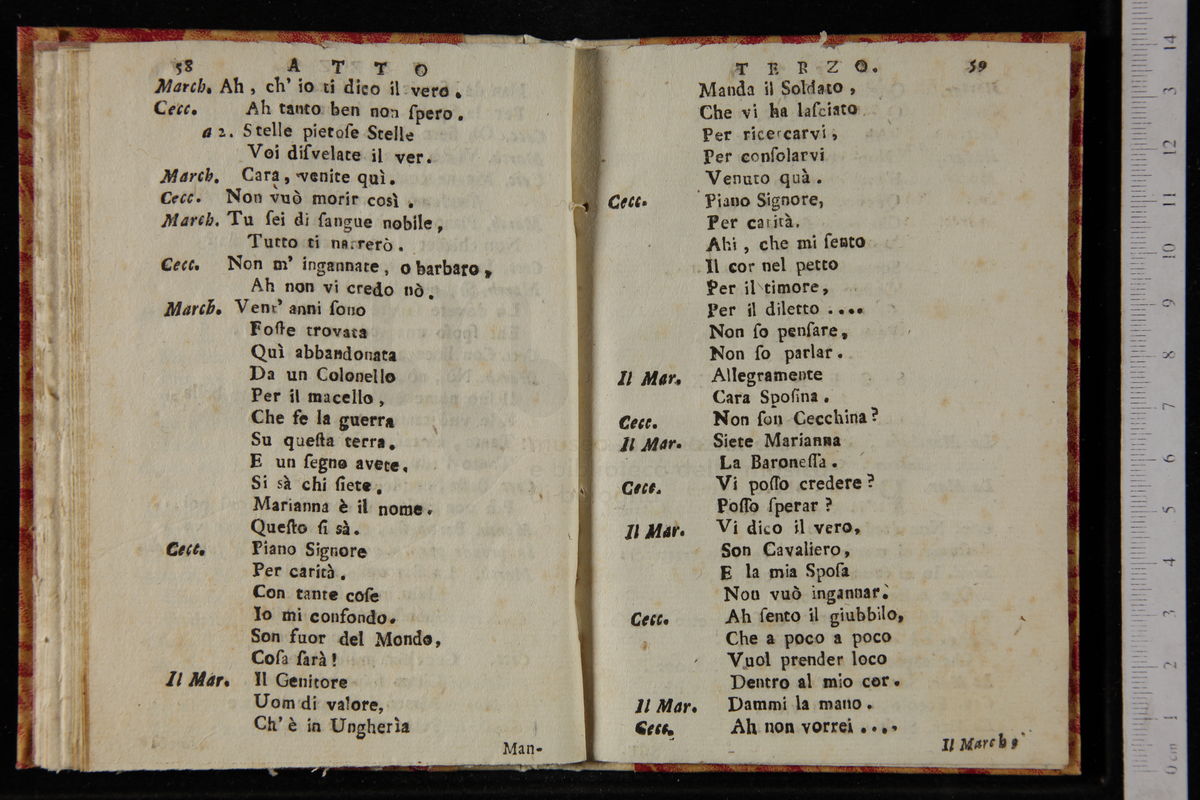 58 ATTO
March. Ah, ch' io ti dico il vero.
Cecc. Ah tanto ben non ſpero.
a 2. Stelle pietoſe Stelle
Voi diſvelate il ver.
March. Cara, venite quì.
Cecc. Non vuò morir così.
March. Tu ſei di ſangue nobile,
Tutto ti narrerò.
Cecc. Non m' ingannate, o barbaro,
Ah non vi credo nò.
March. Vent' anni ſono
Foſte trovata
Quì abbandonata
Da un Colonello
Per il macello,
Che fe la guerra
Su queſta terra.
E un ſegno avete.
Si sà chi ſiete.
Marianna è il nome.
Queſto ſi sà.
Cecc. Piano Signore
Per carità.
Con tante coſe
Io mi confondo.
Son fuor del Mondo,
Coſa ſarà!
Il Mar. Il Genitore
Uom di valore,
Ch' è in Ungherìa
Man-
TERZO. 59
Manda il Soldato,
Che vi ha laſciato
Per ricercarvi,
Per conſolarvi
Venuto quà.
Cecc. Piano Signore,
Per carità.
Ahi, che mi ſento
Il cor nel petto
Per il timore,
Per il diletto ....
Non ſo penſare,
Non ſo parlar.
Il Mar. Allegramente
Cara Spoſina.
Cecc. Non ſon Cecchina?
Il Mar. Siete Marianna
La Baroneſſa.
Cecc. Vi poſſo credere?
Poſſo ſperar?
Il Mar. Vi dico il vero,
Son Cavaliero,
E la mia Spoſa
Non vuò ingannar.
Cecc. Ah ſento il giubbilo,
Che a poco a poco
Vuol prender loco
Dentro al mio cor.
Il Mar. Dammi la mano.
Cecc. Ah non vorrei ....
Il March,
0 cm 1 2 3 4 5 6 7 8 9 10 11 12 13 14